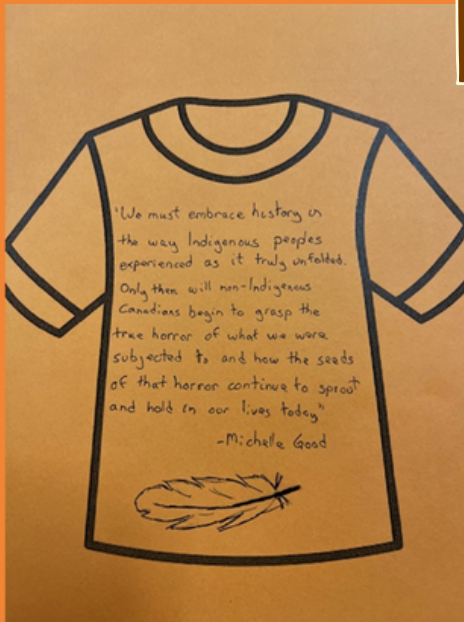 "We must embrace history in
the way Indigenous peoples
experienced as it truly unfolded.
Only then will non-Indigenous
Canadians begin to grasp the
true horror of what we were
subjected to and how the seeds
of that horror continue to sprout
and hold in our lives today"
-Michelle Good